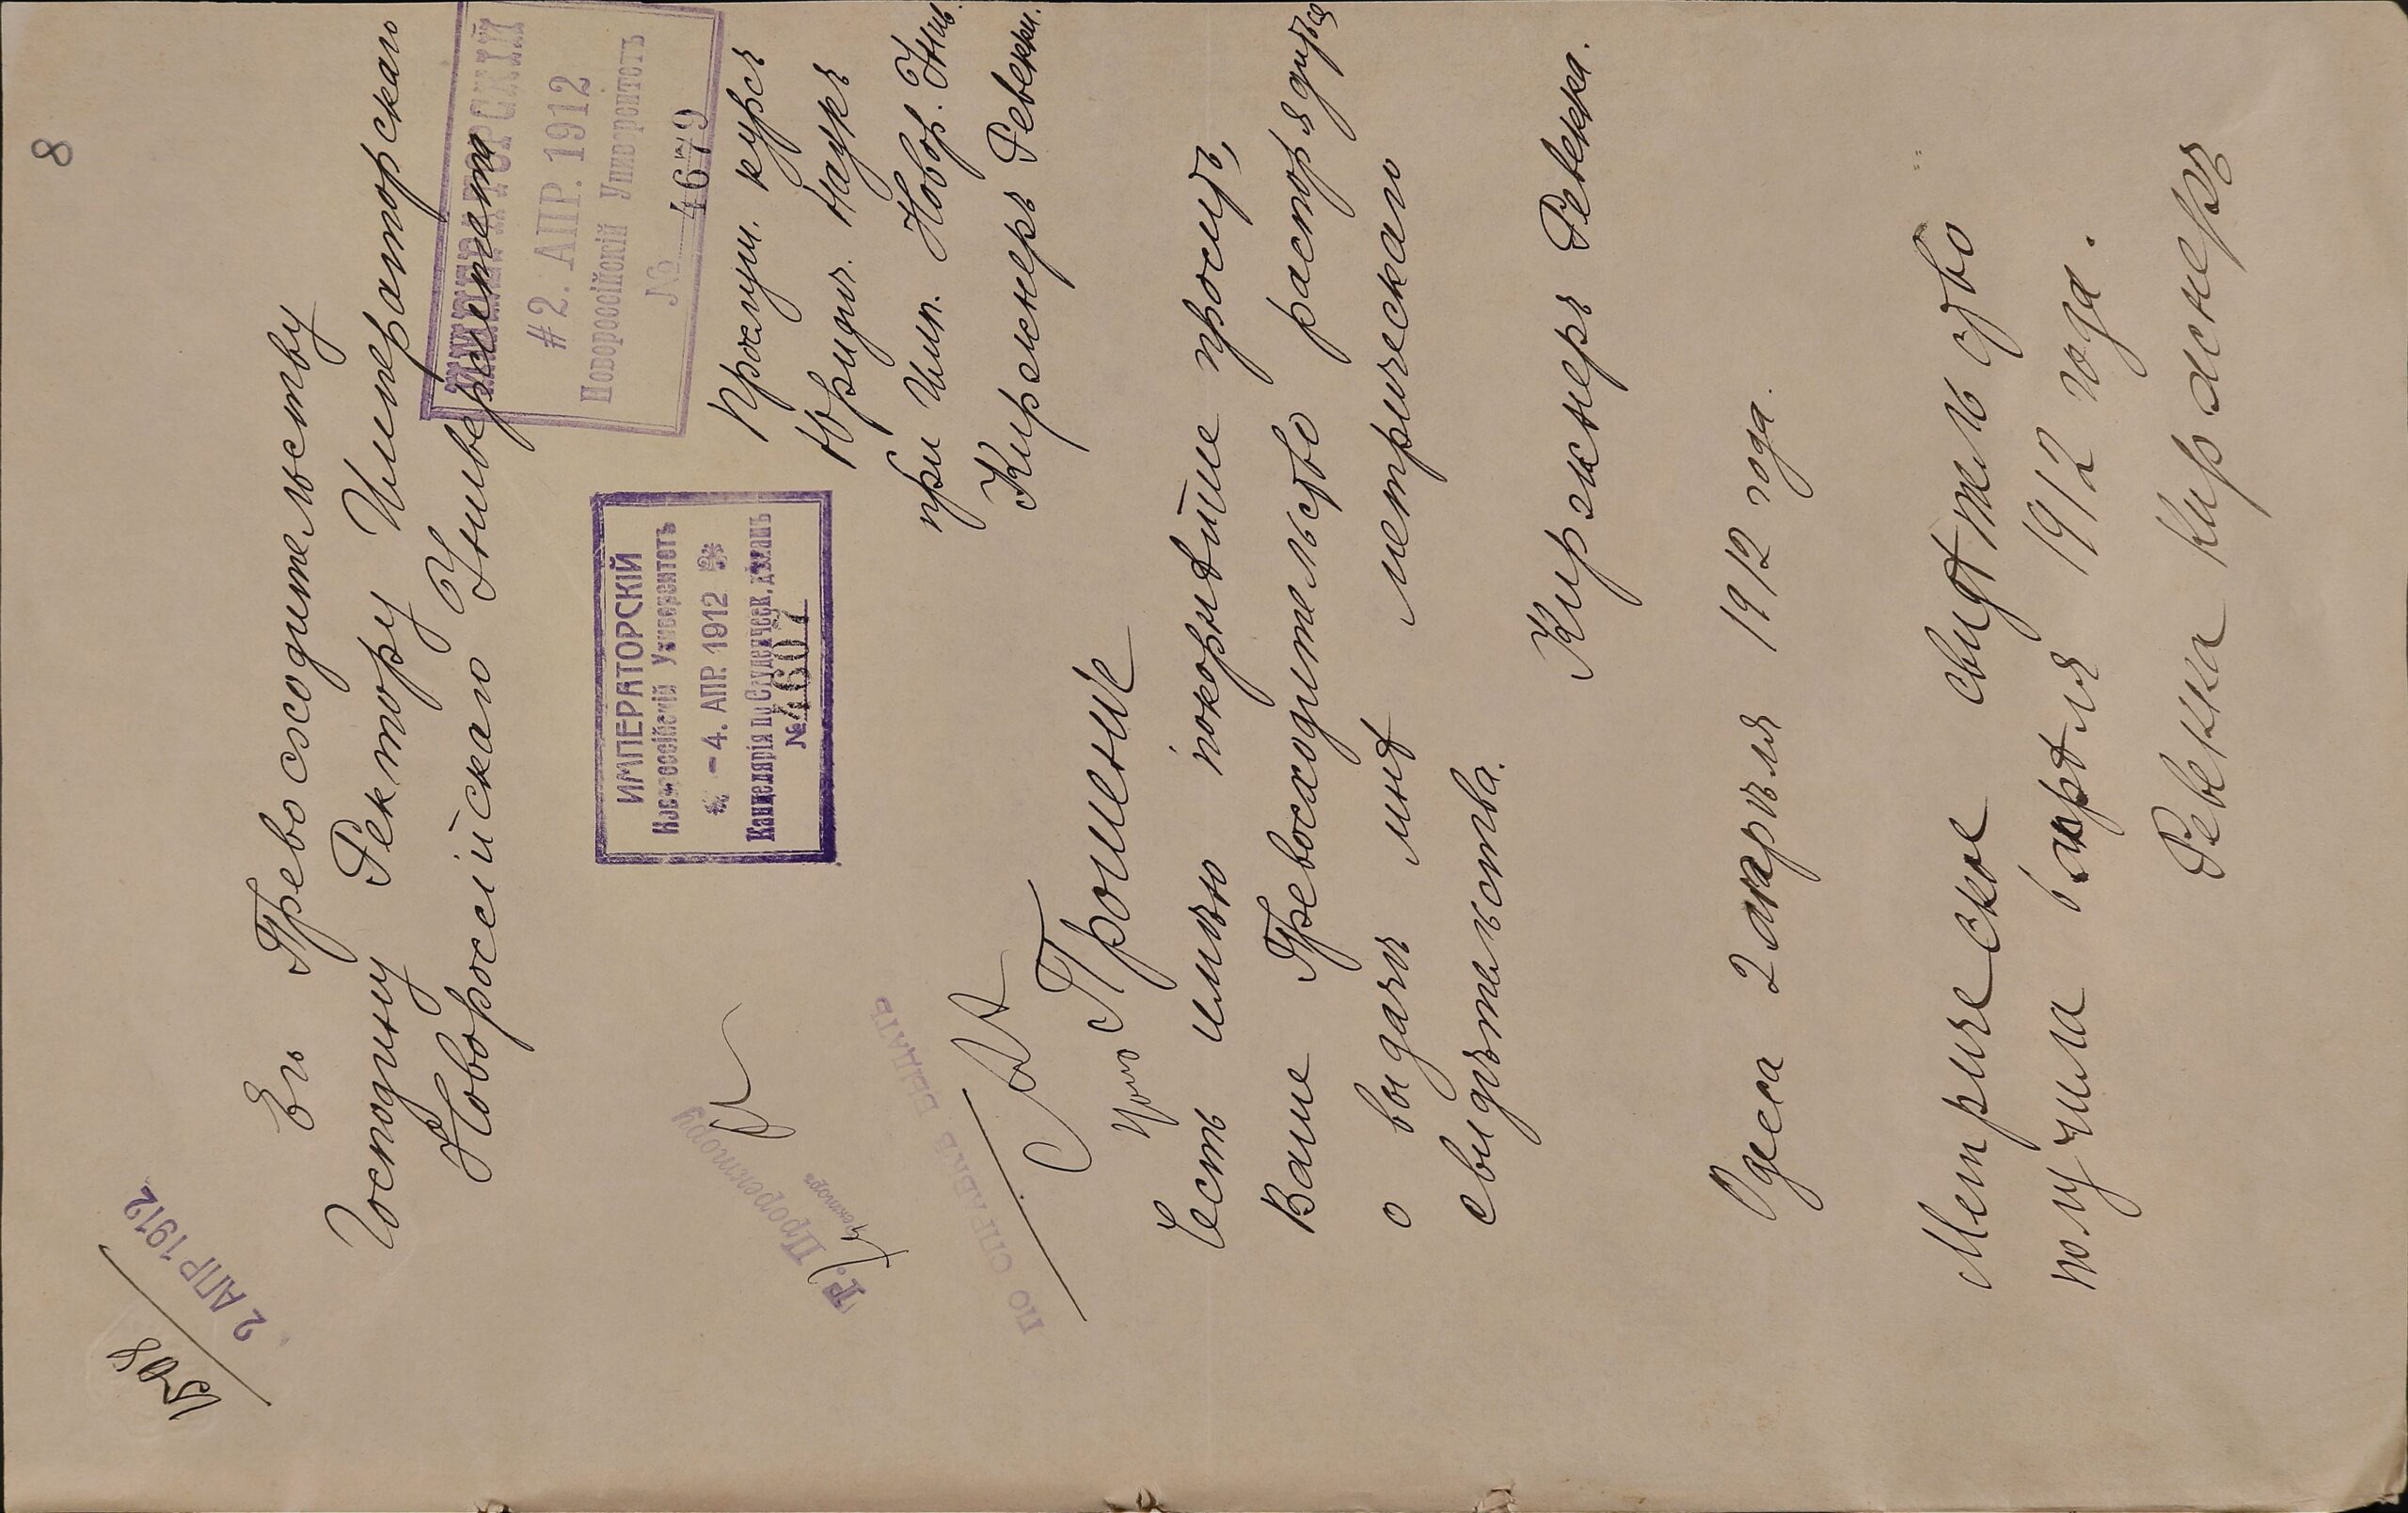 8
1508
2 АПР 1912
Его Превосходительству
Господину Ректору Императорскаго
Новороссійскаго Университета
ИМПЕРАТОРСКІЙ
# 2. АПР. 1912
Новороссійскій Университетъ
№ 4679
ИМПЕРАТОРСКІЙ
Новороссійскій Университетъ
* - 4. АПР. 1912 *
Канцелярія по Студенческ. дѣламъ
№ 4607
Прослуш. курсъ
Юридич. Наукъ
при Имп. Новор. Унив.
Киржнеръ Ревекки.
Г. Проректору
ПО СПРАВКѢ ВЫДАТЬ
Прошеніе
Честь имѣю покорнѣйше просить,
Ваше Превосходительство распорядиться
о выдачѣ мнѣ метрическаго
свидѣтельства.
Киржнеръ Ревекка.
Одесса 2 апрѣля 1912 года.
Метрическое свидѣтельство
получила 6 апрѣля 1912 года.
Ревекка Киржнеръ